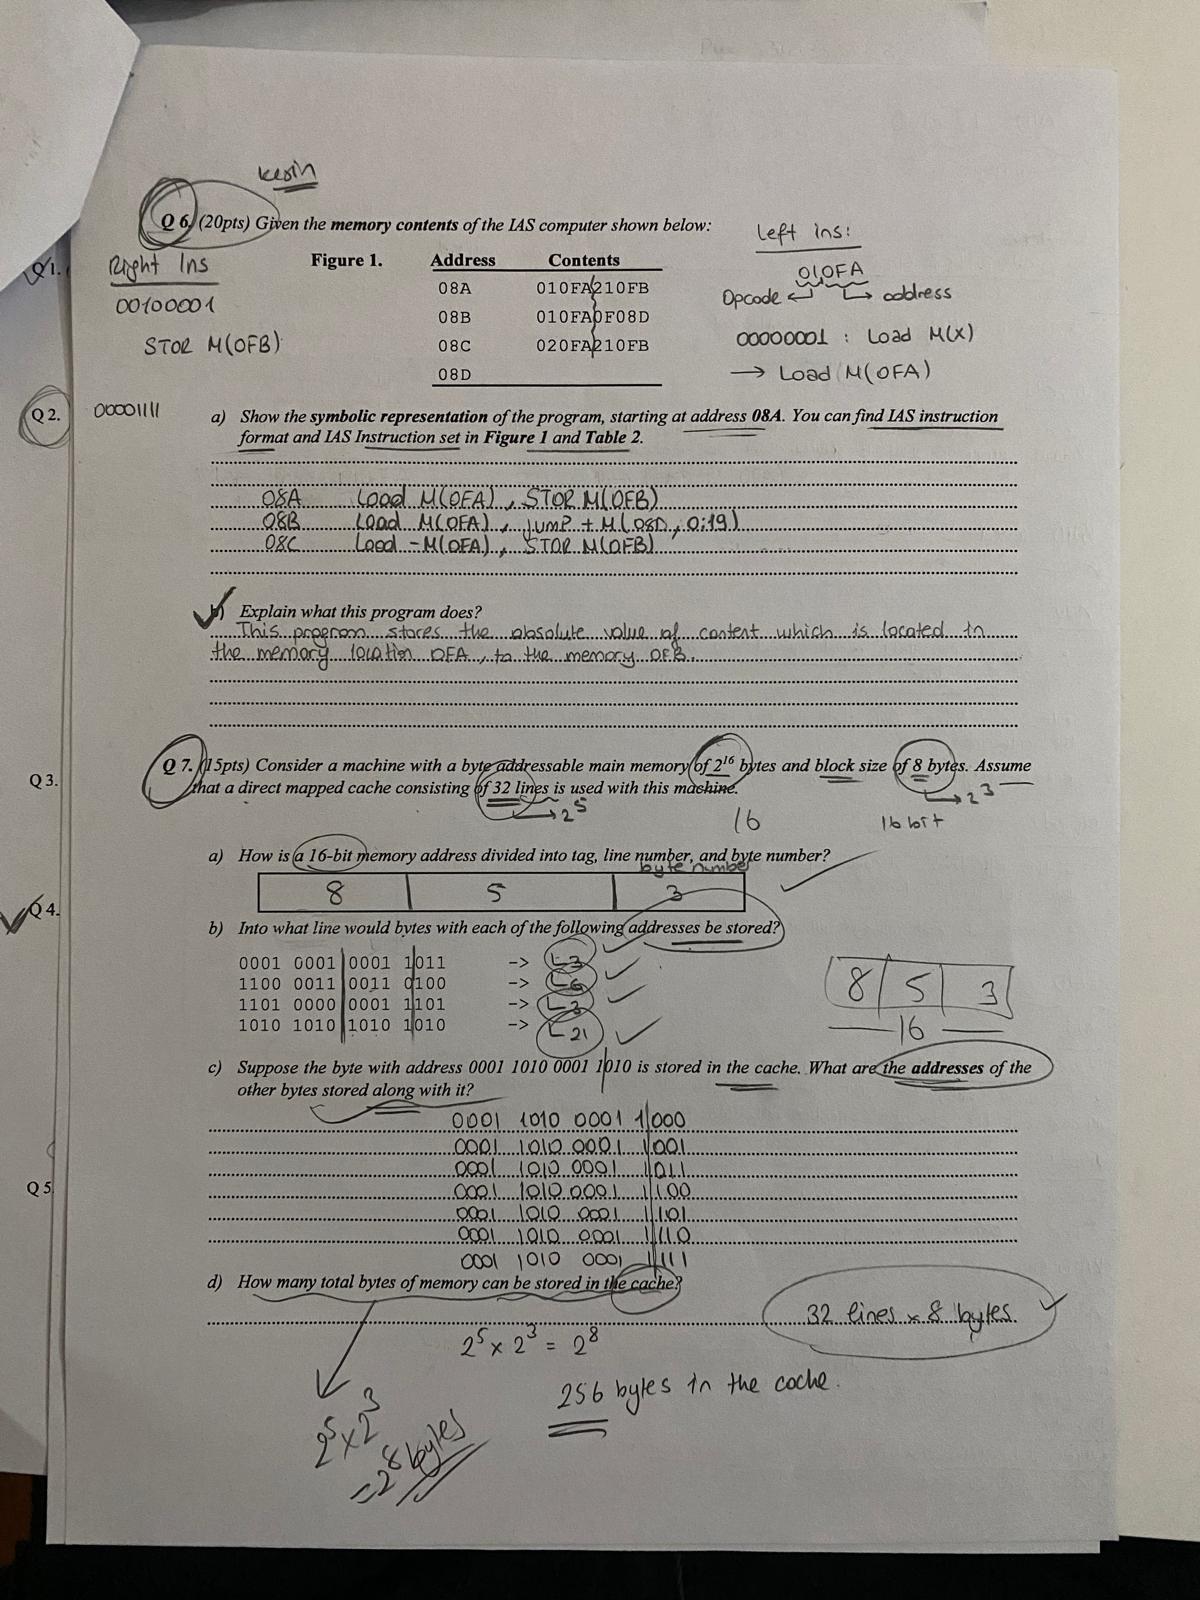 kesin
Q 6. (20pts) Given the memory contents of the IAS computer shown below:
Left ins:
Right Ins
Figure 1. Address Contents
010FA
Q1.
00100001
08A 010FA210FB
Opcode address
08B 010FA0F08D
STOR M(0FB)
00000001 : Load M(X)
08C 020FA210FB
→ Load M(0FA)
08D
Q 2.
00001111
a) Show the symbolic representation of the program, starting at address 08A. You can find IAS instruction
format and IAS Instruction set in Figure 1 and Table 2.
08A Load M(0FA), STOR M(0FB)
08B Load M(0FA), JUMP + M(08D, 0:19)
08C Load -M(0FA), STOR M(0FB)
b) Explain what this program does?
This program stores the absolute value of content which is located in
the memory location 0FA, to the memory 0FB.
Q 7. (15pts) Consider a machine with a byte addressable main memory of 2¹⁶ bytes and block size of 8 bytes. Assume
Q 3.
that a direct mapped cache consisting of 32 lines is used with this machine.
→ 2⁵
→ 2³
16
16 bit
a) How is a 16-bit memory address divided into tag, line number, and byte number?
byte number
8 5 3
Q 4.
b) Into what line would bytes with each of the following addresses be stored?
0001 0001 0001 1011 -> L3
1100 0011 0011 0100 -> L6
1101 0000 0001 1101 -> L3
1010 1010 1010 1010 -> L21
8 5 3
16
c) Suppose the byte with address 0001 1010 0001 1010 is stored in the cache. What are the addresses of the
other bytes stored along with it?
0001 1010 0001 1000
0001 1010 0001 1001
0001 1010 0001 1011
Q 5
0001 1010 0001 1100
0001 1010 0001 1101
0001 1010 0001 1110
0001 1010 0001 1111
d) How many total bytes of memory can be stored in the cache?
32 lines x 8 bytes.
2⁵ x 2³ = 2⁸
256 bytes in the cache.
2⁵ x 2³
= 2⁸ bytes